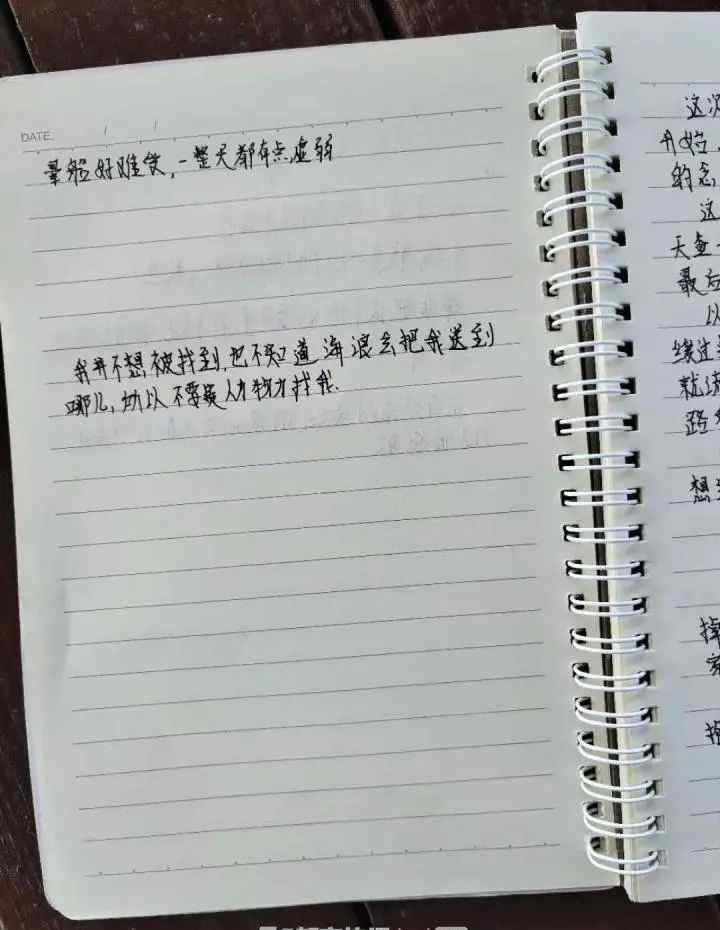 DATE: / /
晕船好难受，一整天都有点虚弱
我并不想被找到，也不知道海浪会把我送到
哪儿，所以不要费人力物力找我.
这次
开始，
的念
这
天查
最后
以
线
就
路
想